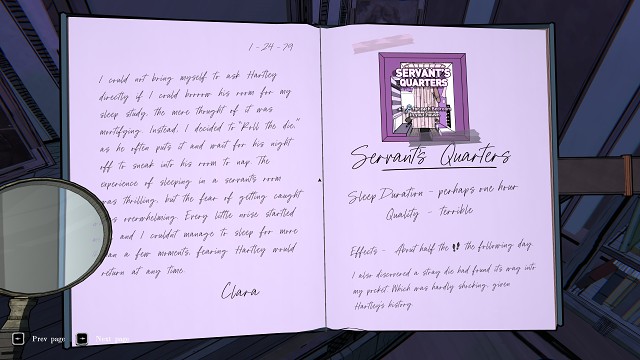 1-24-79
I could not bring myself to ask Hartley
directly if I could borrow his room for my
sleep study, the mere thought of it was
mortifying. Instead, I decided to "Roll the die,"
as he often puts it and wait for his night
off to sneak into his room to nap. The
experience of sleeping in a servant's room
was thrilling, but the fear of getting caught
was overwhelming. Every little noise startled
and I couldn't manage to sleep for more
than a few moments, fearing Hartley would
return at any time.
Clara
SERVANT'S
QUARTERS
Servant's Quarters
Sleep Duration - perhaps one hour
Quality - terrible
Effects - About half the the following day
I also discovered a stray die had found its way into
my pocket. Which was hardly shocking, given
Hartley's history.
Prev page
Next page